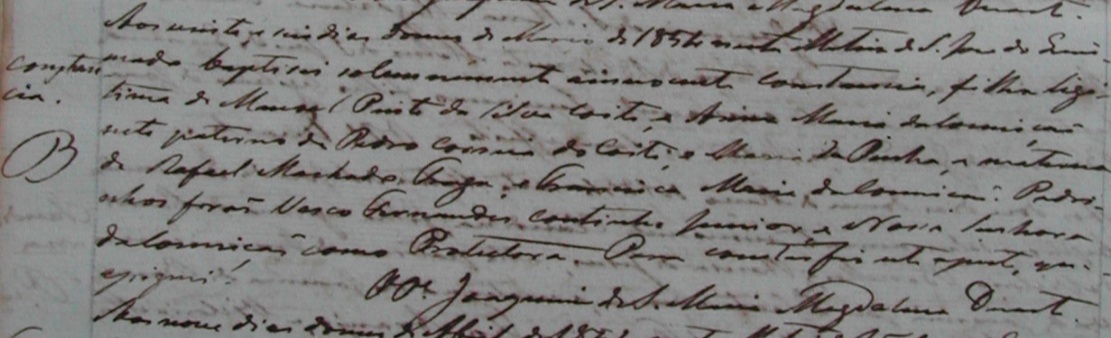 Joaquim de S. Maria e Magdalena Duart.
Aos vinte e seis dias do mes de Março de 1854 nesta Matris de S. Joze do
Constan
cia.
mado baptisei solemnemente innocente Constancia, filha legi-
tima de Manoel Pinto da Silva Costa, e Anna Maria da Conceição
neta paterna de Pedro da Costa, e Maria da Penha, e materna
B
de Rafael Machado Braga, e Francisca Maria da Conceição. Padri-
nhos forão Vasco Fernandes Coutinho Junior, e Nossa Senhora
da Conceição como Protectora. Para constar fis este apont, que
assignei.
O Pe. Joaquim de S. Maria Magdalena Duart.
Aos nove dias do mes de Abril de 185